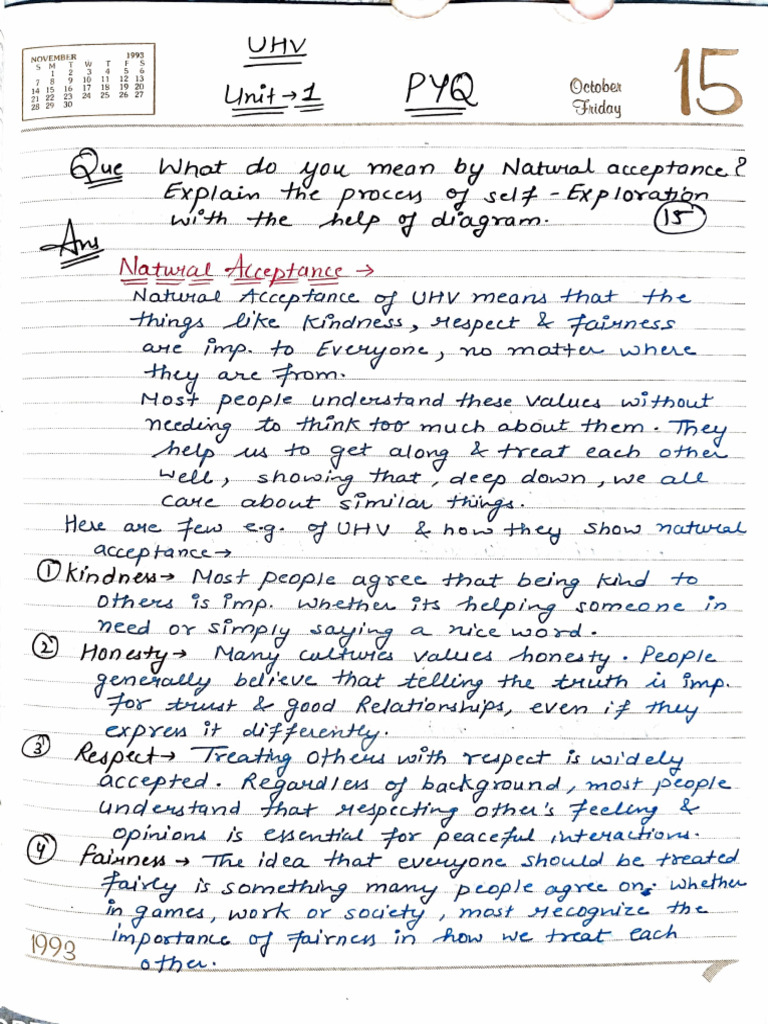 NOVEMBER 1993
S M T W T F S
1 2 3 4 5 6
7 8 9 10 11 12 13
14 15 16 17 18 19 20
21 22 23 24 25 26 27
28 29 30
UHV
Unit → 1 PYQ
October
Friday
15
Que What do you mean by Natural acceptance?
Explain the process of self - Exploration
with the help of diagram. 15
Ans
Natural Acceptance →
Natural Acceptance of UHV means that the
things like Kindness, respect & fairness
are imp. to Everyone, no matter where
they are from.
Most people understand these values without
needing to think too much about them. They
help us to get along & treat each other
well, showing that, deep down, we all
care about similar things.
Here are few e.g. of UHV & how they show natural
acceptance →
① Kindness → Most people agree that being kind to
others is imp. whether its helping someone in
need or simply saying a nice word.
② Honesty → Many cultures values honesty. People
generally believe that telling the truth is imp.
for trust & good Relationships, even if they
express it differently.
③ Respect → Treating others with respect is widely
accepted. Regardless of background, most people
understand that respecting other's feeling &
opinions is essential for peaceful interactions.
④ fairness → The idea that everyone should be treated
fairly is something many people agree on. whether
in games, work or society, most recognize the
importance of fairness in how we treat each
other.
1993